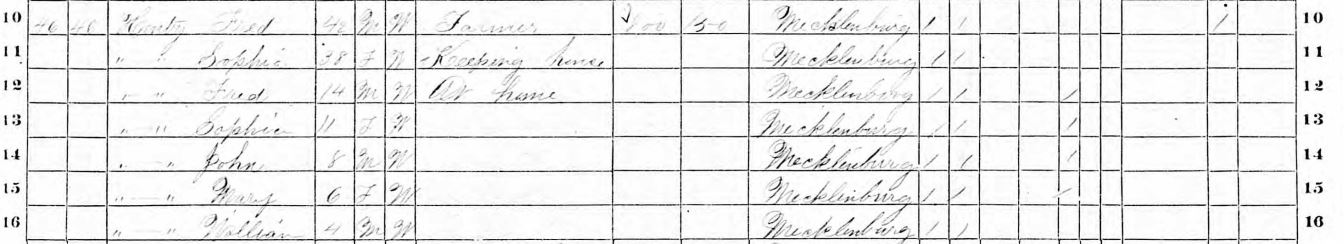 10 46 48 Fred 42 M W Farmer Mecklenburg 1 1 1 10
11 " " Sophia 38 F W Keeping house Mecklenburg 1 1 11
12 " " Fred 14 M W At home Mecklenburg 1 1 1 12
13 " " Sophia 11 F W Mecklenburg 1 1 1 13
14 " " John 8 M W Mecklenburg 1 1 1 14
15 " " Mary 6 F W Mecklenburg 1 1 1 15
16 " " William 4 M W Mecklenburg 1 1 16